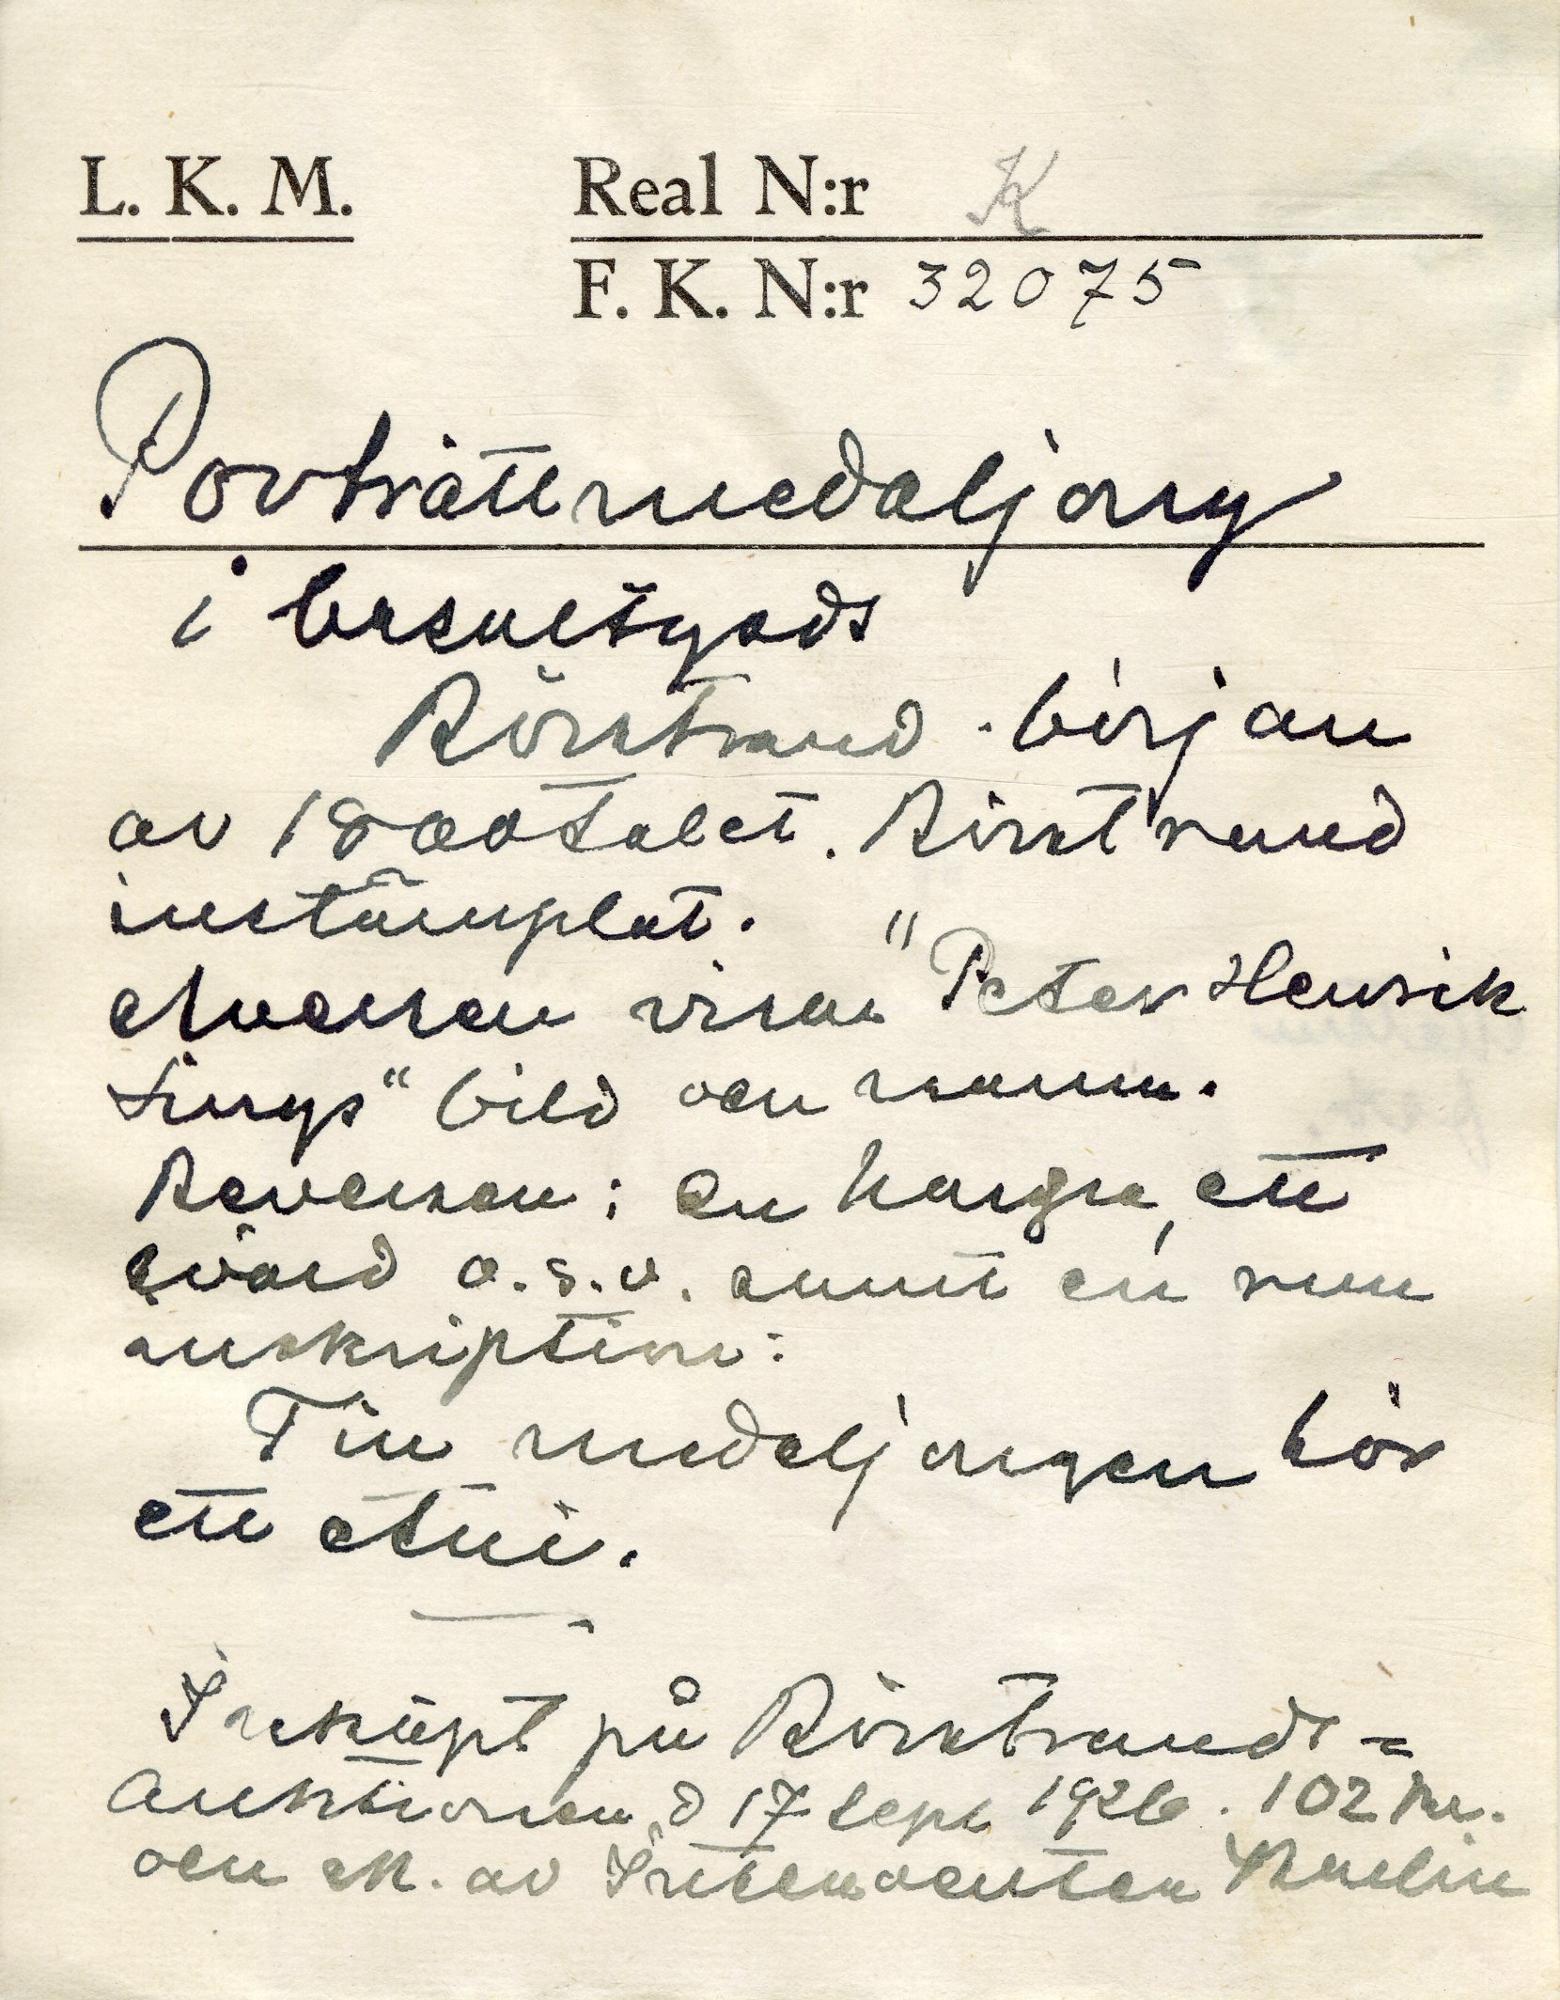 L. K. M. Real N:r K
F. K. N:r 32075
Porträttmedaljong
i basaltgods
Rörstrand. början
av 1800talet. Rörstrand
instämplat.
Aversen visar "Peter Henrik
Lings" bild och namn.
Reversen: en harpa, ett
svärd o.s.v. samt en run
inskription:
Till medaljongen hör
ett etui.
Inköpt på Rörstrands=
auktionen d 17 sept 1926. 102 kr.
och av Intendenten